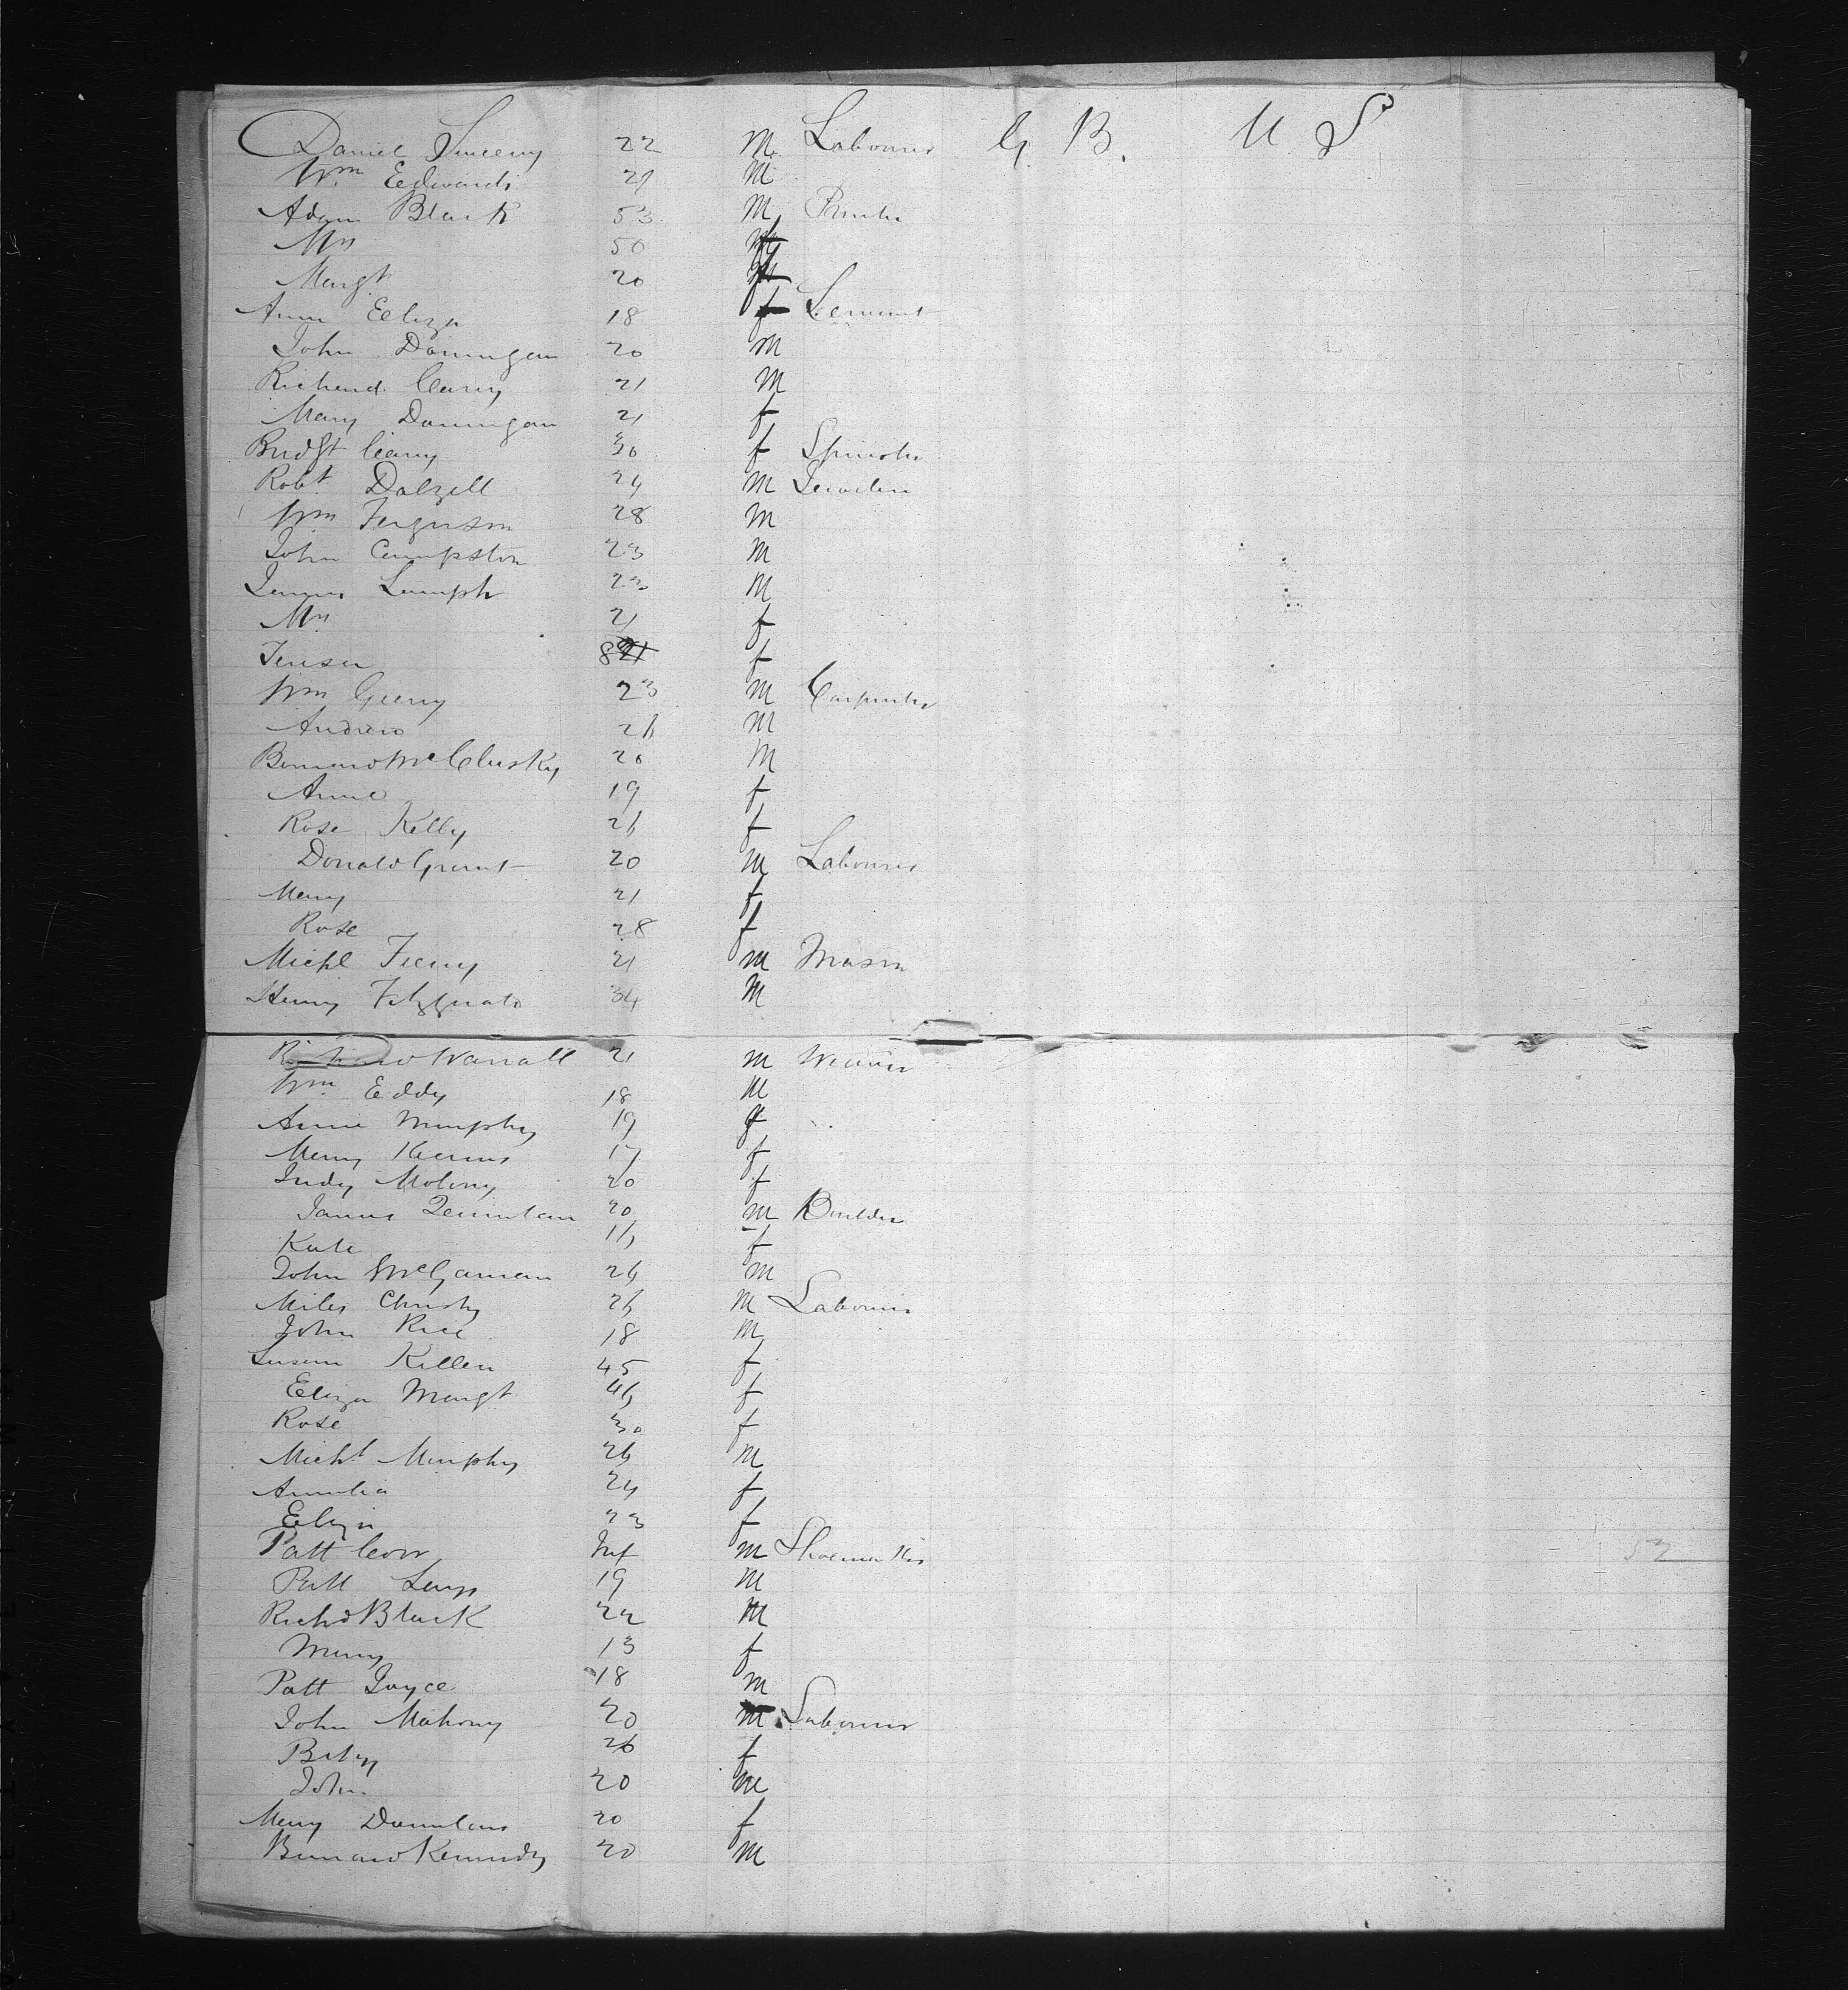 Daniel Sweeny 22 M Labourer G. B. U S
Wm Edwards 21 M
Adam Black 53 M Printer
Mrs 50 f
Margt 20 f
Ann Eliza 18 f Servant
John Dannigan 20 M
Richard Carry 21 M
Mary Dannigan 21 f
Bridgt Carry 30 f Spinster
Robt Dalzell 24 M
Wm Ferguson 28 M
John Campston 23 M
James Lumph 23 M
Mrs 21 f
8 f
Wm Geeny 23 M Carpenter
Andrew 26 M
Bernard McClusky 20 M
Anne 19 f
Rose Kelly 26 f
Donald Grant 20 M Labourer
Mary 21 f
Rose 28 f
Michl Feeny 21 M Mason
Henry Fitzgerald 34 M
Richard Warrall 21 M Weaver
Wm Eddy 18 M
Anne Murphy 19 f
Mary Kearns 17 f
Judy Molony 20 f
James Quinlan 20 M Builder
Kate 16 f
John McGarran 26 M
Miles Christy 26 M Labourer
John Rice 18 M
Susan Killen 45 f
Eliza Margt 46 f
Rose 30 f
Michl Murphy 26 M
Amelia 24 f
Eliza 23 f
Patt Corr Inf M Shoemaker 52
Patt 19 M
Richd Black 22 M
Mary 13 f
Patt Joyce 18 M
John Mahony 20 M Labourer
Betsy 26 f
John 20 M
Mary Dannlans 20 f
Bernard Kennedy 20 M